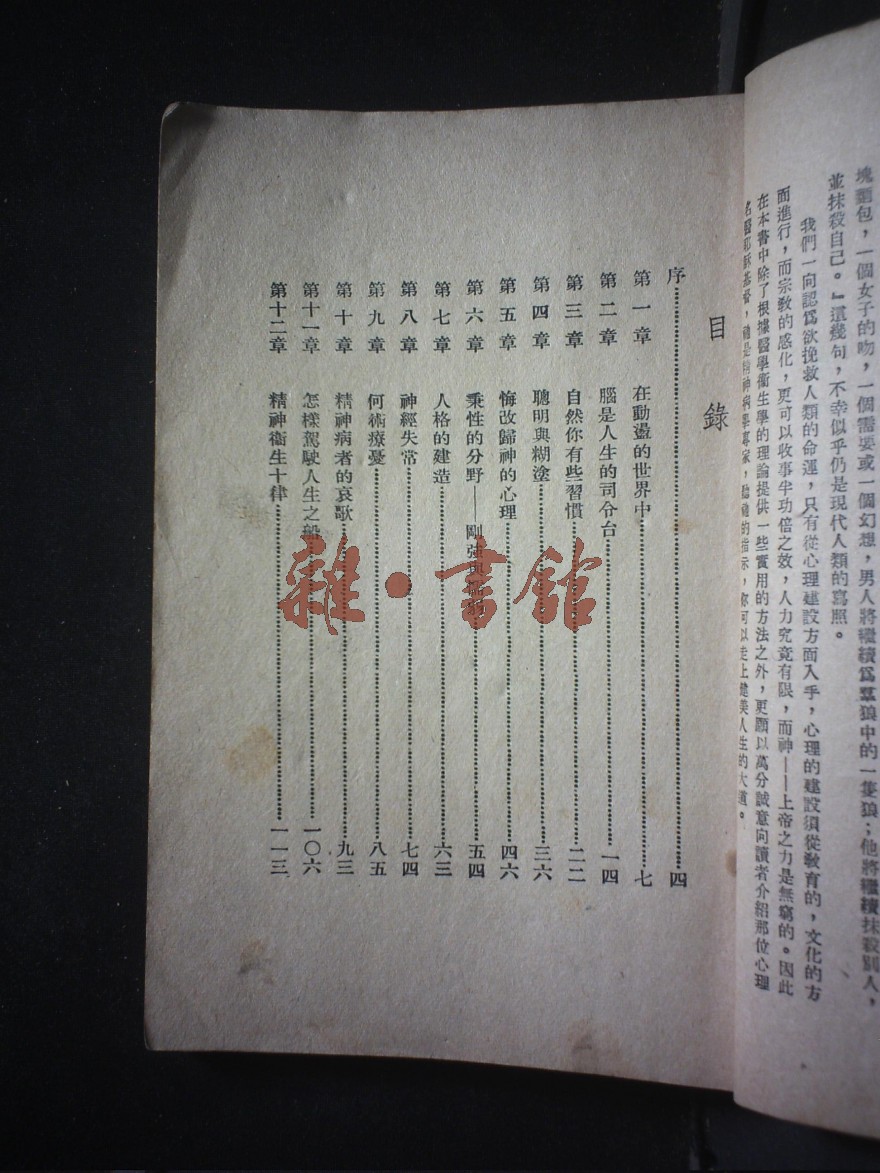 塊麵包，一個女子的吻，一個需要或一個幻想，男人將繼續爲羣狼中的一隻狼；他將繼續抹殺別人，
並抹殺自己。』這幾句，不幸似乎仍是現代人類的寫照。
我們一向認爲欲挽救人類的命運，只有從心理建設方面入手，心理的建設須從敎育的，文化的方
而進行，而宗敎的感化，更可以收事半功倍之效，人力究竟有限，而神——上帝之力是無窮的。因此
在本書中除了根據醫學衞生學的理論提供一些實用的方法之外，更願以萬分誠意向讀者介紹那位心理
名醫耶穌基督，祂是精神病學專家，聽祂的指示，你可以走上健美人生的大道。
目錄
序……四
第一章 在動盪的世界中……七
第二章 腦是人生的司令台……一四
第三章 自然你有些習慣……二二
第四章 聰明與糊塗……三六
第五章 悔改歸神的心理……四六
第六章 秉性的分野——剛強與……五四
第七章 人格的建造……六三
第八章 神經失常……七四
第九章 何術療憂……八五
第十章 精神病者的哀歌……九三
第十一章 怎樣駕駛人生之船……一〇六
第十二章 精神衞生十律……一一三
雜·書館